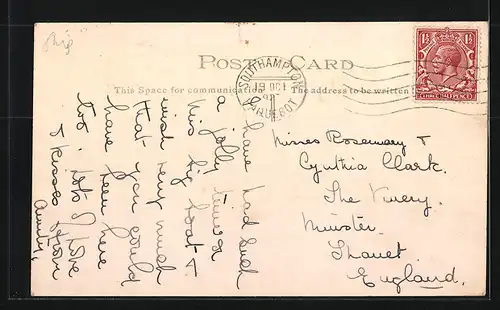 Ship
POST CARD
This Space for communication
The address to be written
SOUTHAMPTON
19 OCT
PAQUEBOT
1½ 1½
THREE HALFPENCE
I have had such
a jolly time on
this big boat &
wish very much
that you could
have been here
too. Lots of love
& kisses from
Aunty.
Misses Rosemary &
Cynthia Clark.
The Vinery.
Minster.
Thanet
England.